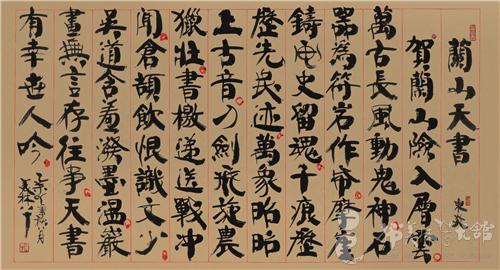 蘭山天書
賀蘭山險入層雲
萬古長風動鬼神石
器為符岩作帛磨崖
鑄史留魂千痕歷
歷先民迹萬象昭昭
上古音刀劍飛旋農
獵壯書檄遞送戰冲
聞倉頡飲恨識文少
吳道含羞潑墨溫巖
畫無言存往事天書
有幸世人吟